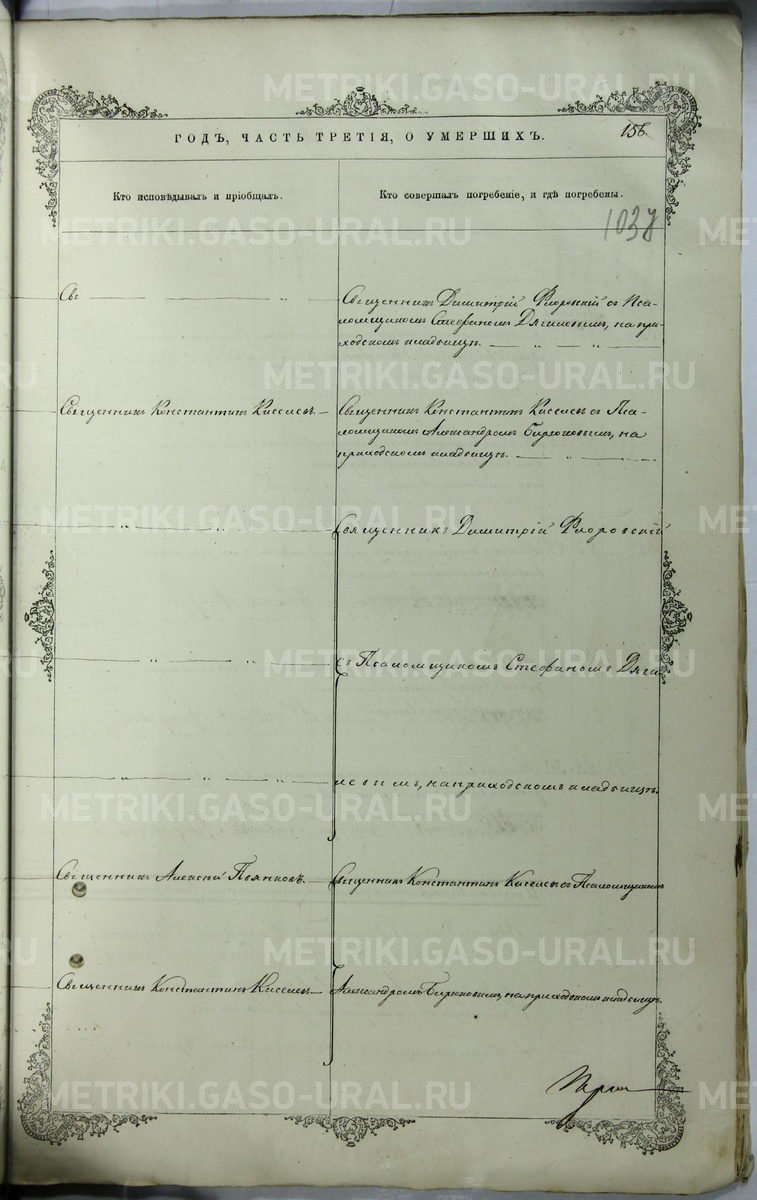 METRIKI.GASO-URAL.RU
ГОДЪ, ЧАСТЬ ТРЕТІЯ, О УМЕРШИХЪ.
156
Кто исповѣдывалъ и пріобщалъ.
Кто совершалъ погребеніе, и гдѣ погребены.
1037
Священникъ Димитрій Флоровскій съ Пса-
ломщикомъ Стефаномъ Дягилевымъ, на при-
ходскомъ кладбищѣ. — „ — „ —
Священникъ Константинъ Киселевъ. —
Священникъ Константинъ Киселевъ съ Пса-
ломщикомъ Александромъ Бирюковымъ, на
приходскомъ кладбищѣ. — „ —
— „ — „ —
Священникъ Димитрій Флоровскій
— „ — „ —
съ Псаломщикомъ Стефаномъ Дяги
— „ — „ —
левымъ, на приходскомъ кладбищѣ.
Священникъ Алексѣй Пьянковъ. —
Священникъ Константинъ Киселевъ съ Псаломщикомъ
Священникъ Константинъ Киселевъ —
Александромъ Бирюковымъ, на приходскомъ кладбищѣ.